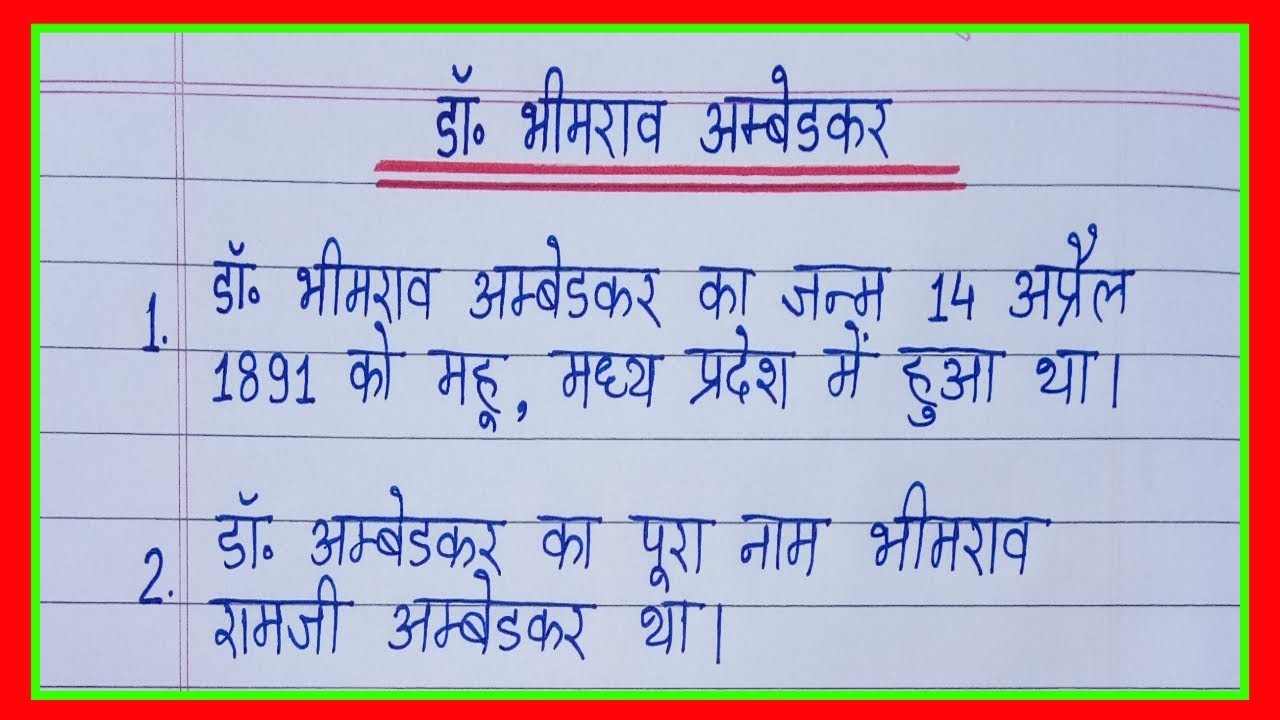 डॉ॰ भीमराव अम्बेडकर
1. डॉ॰ भीमराव अम्बेडकर का जन्म 14 अप्रैल
1891 को महू, मध्य प्रदेश में हुआ था।
2. डॉ॰ अम्बेडकर का पूरा नाम भीमराव
रामजी अम्बेडकर था।